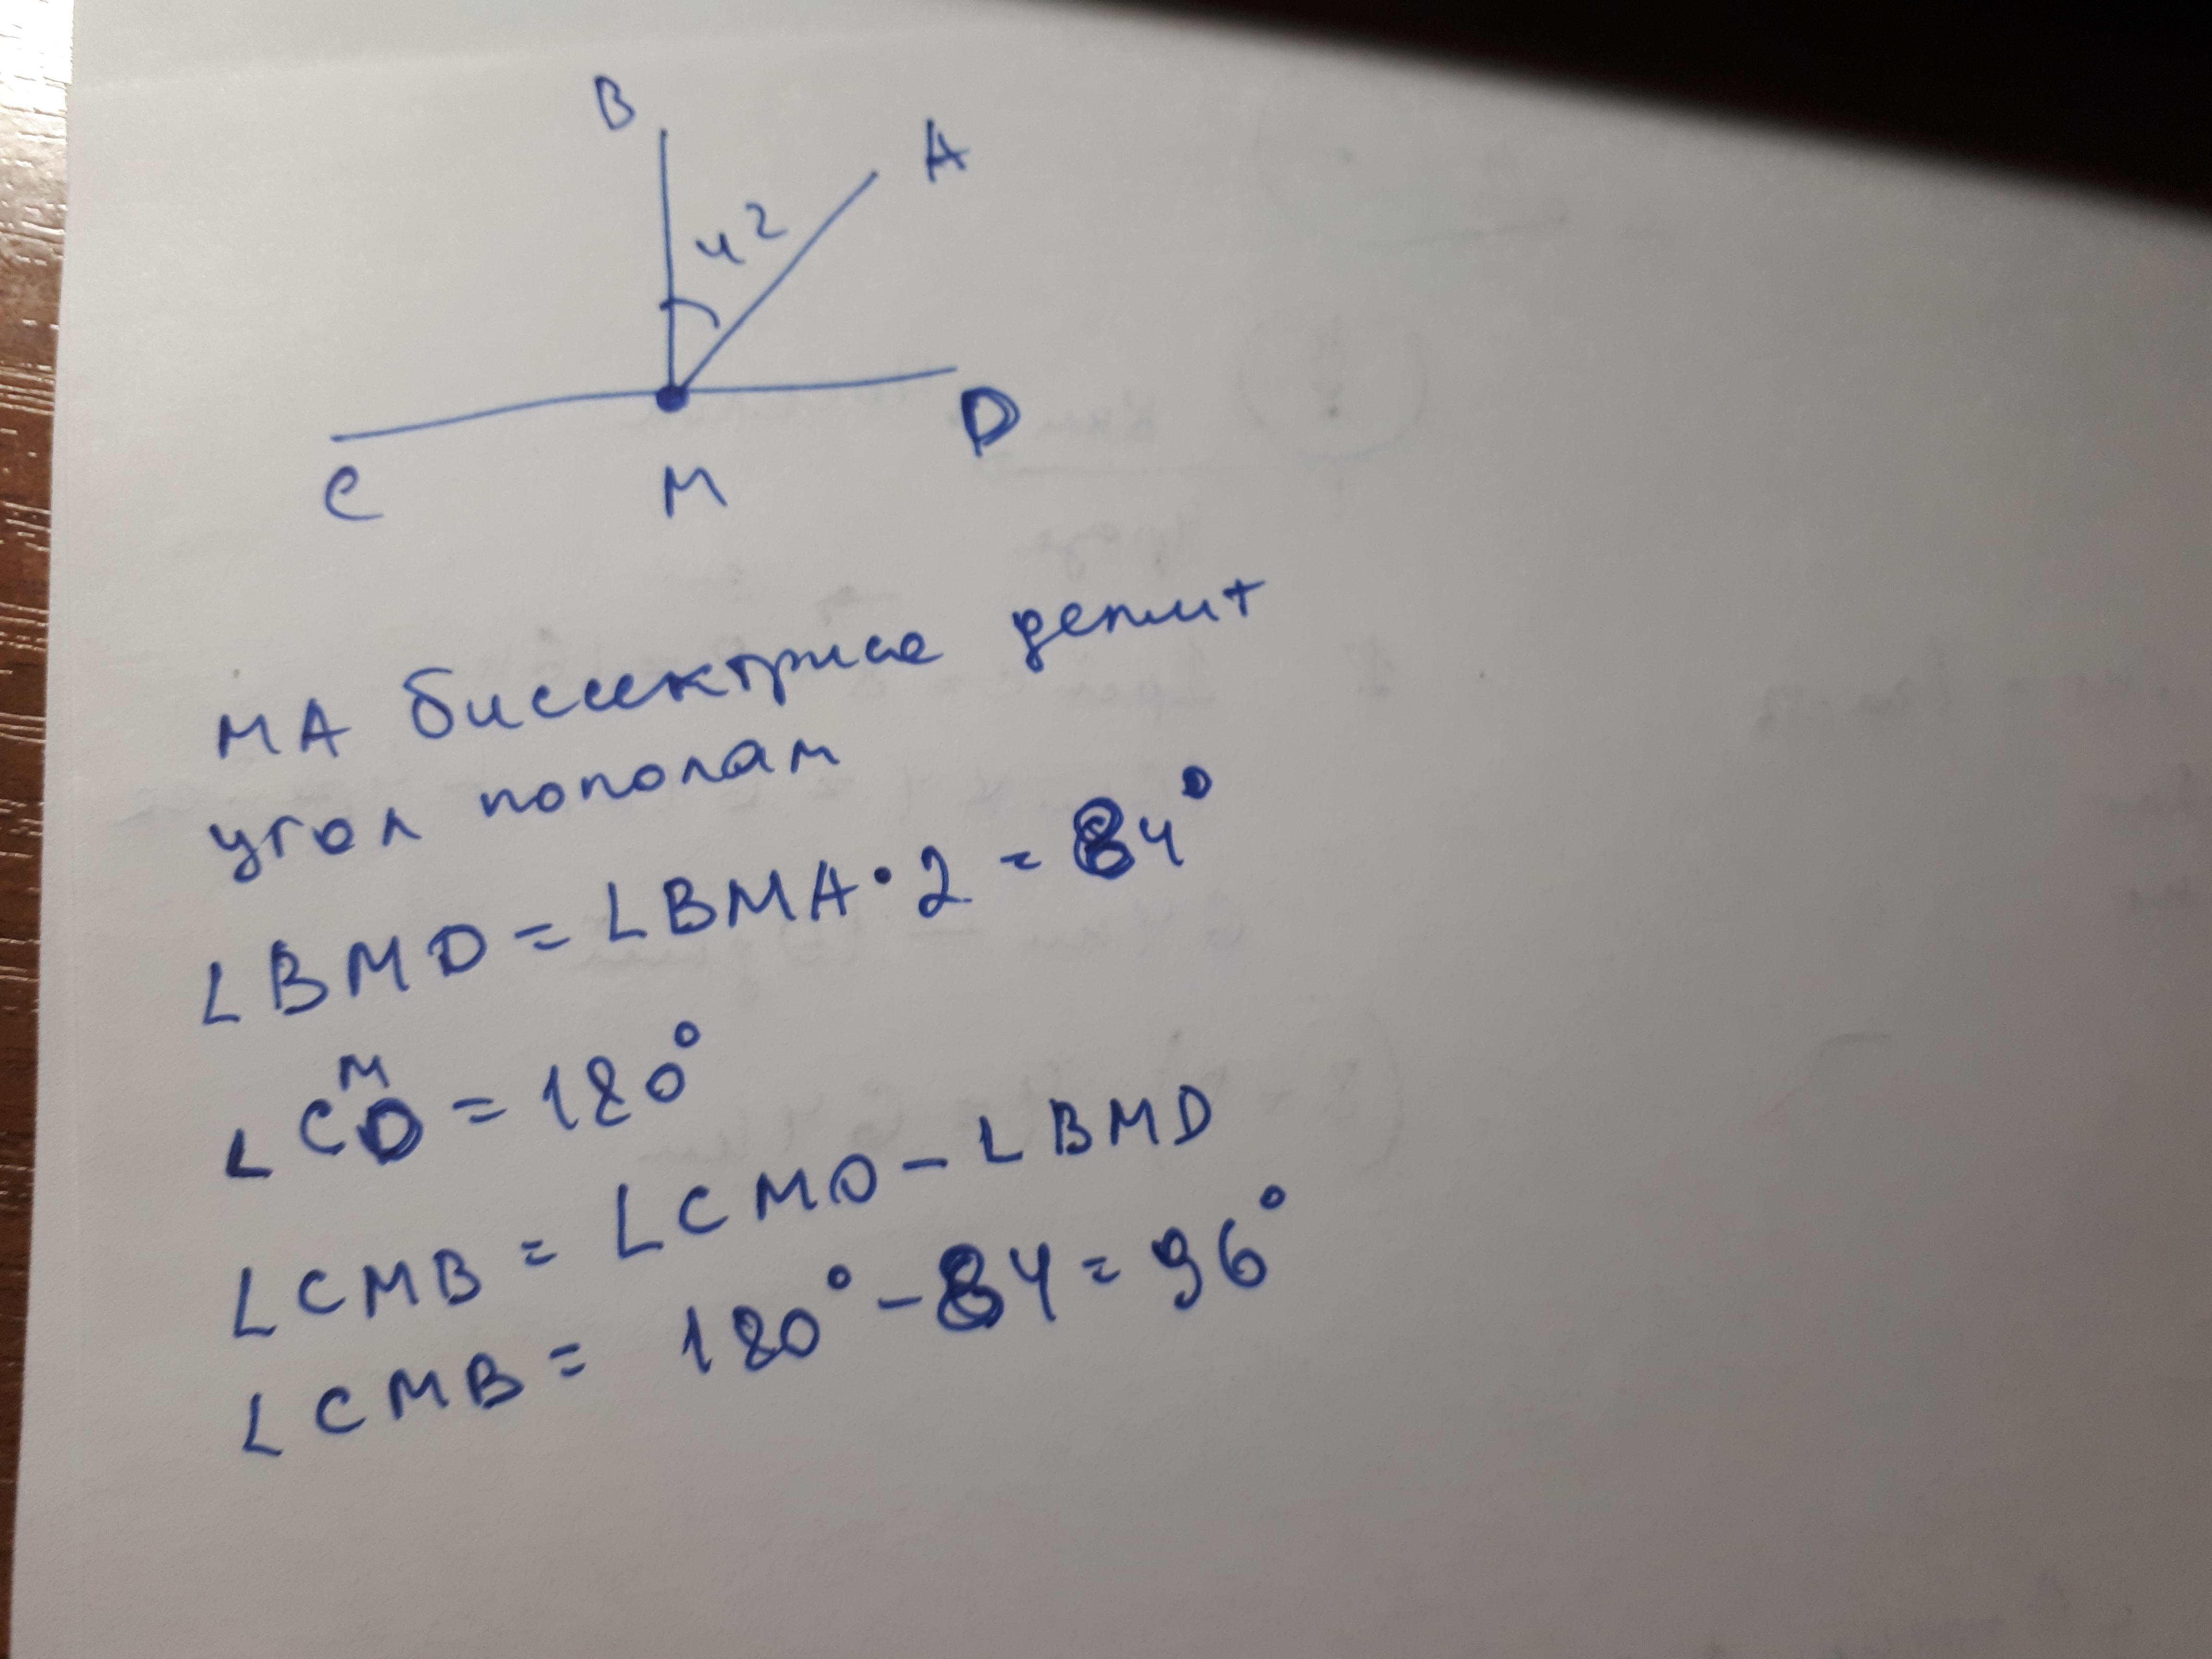 B
A
42
C
M
D
МА биссектриса делит
угол пополам
∠BMD = ∠BMA · 2 = 84°
∠CMD = 180°
∠CMB = ∠CMD - ∠BMD
∠CMB = 180° - 84 = 96°